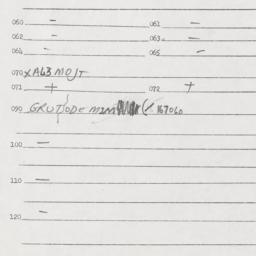 060 — 061 —
062 — 063 —
064 — 065 —
070 x A63 MOJT
071 + 072 +
090 167060
100 —
110 —
120 —